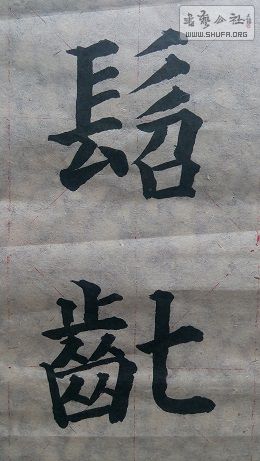 髫
齔
書艺公社
WWW.SHUFA.ORG